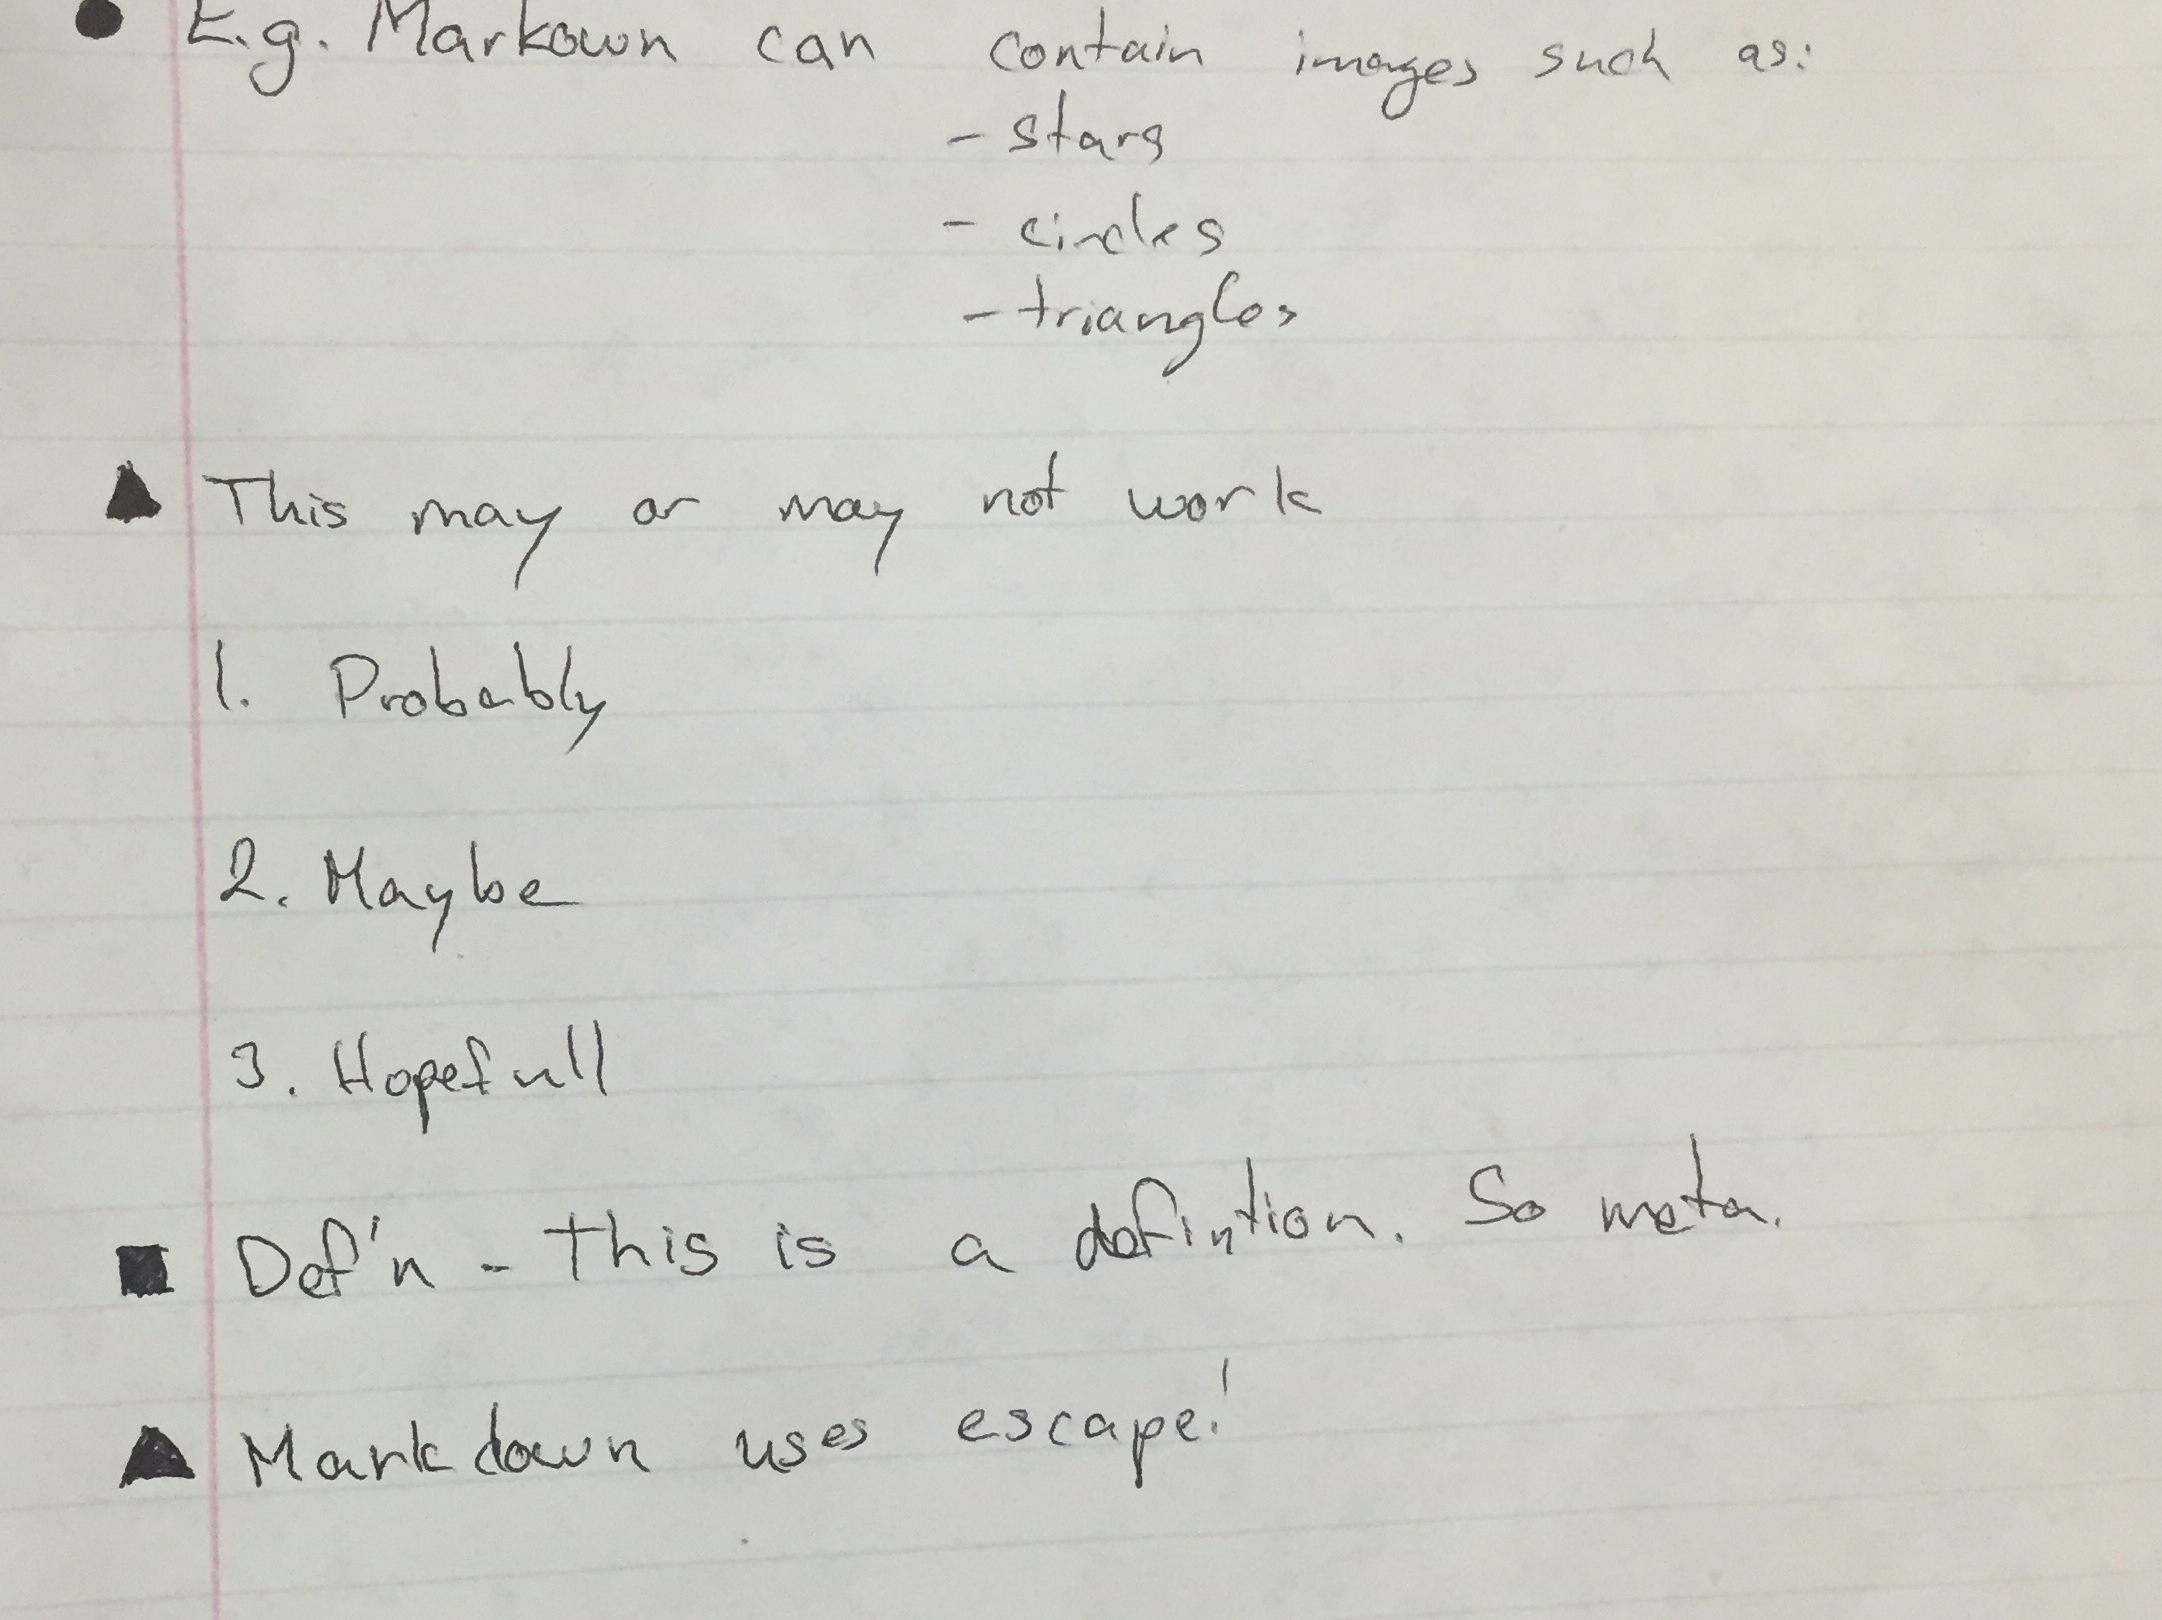 ● E.g. Markown can contain images such as:
- stars
- circles
- triangles
▲ This may or may not work
1. Probably
2. Maybe
3. Hopefull
■ Def'n - This is a defintion. So meta.
▲ Markdown uses escape!